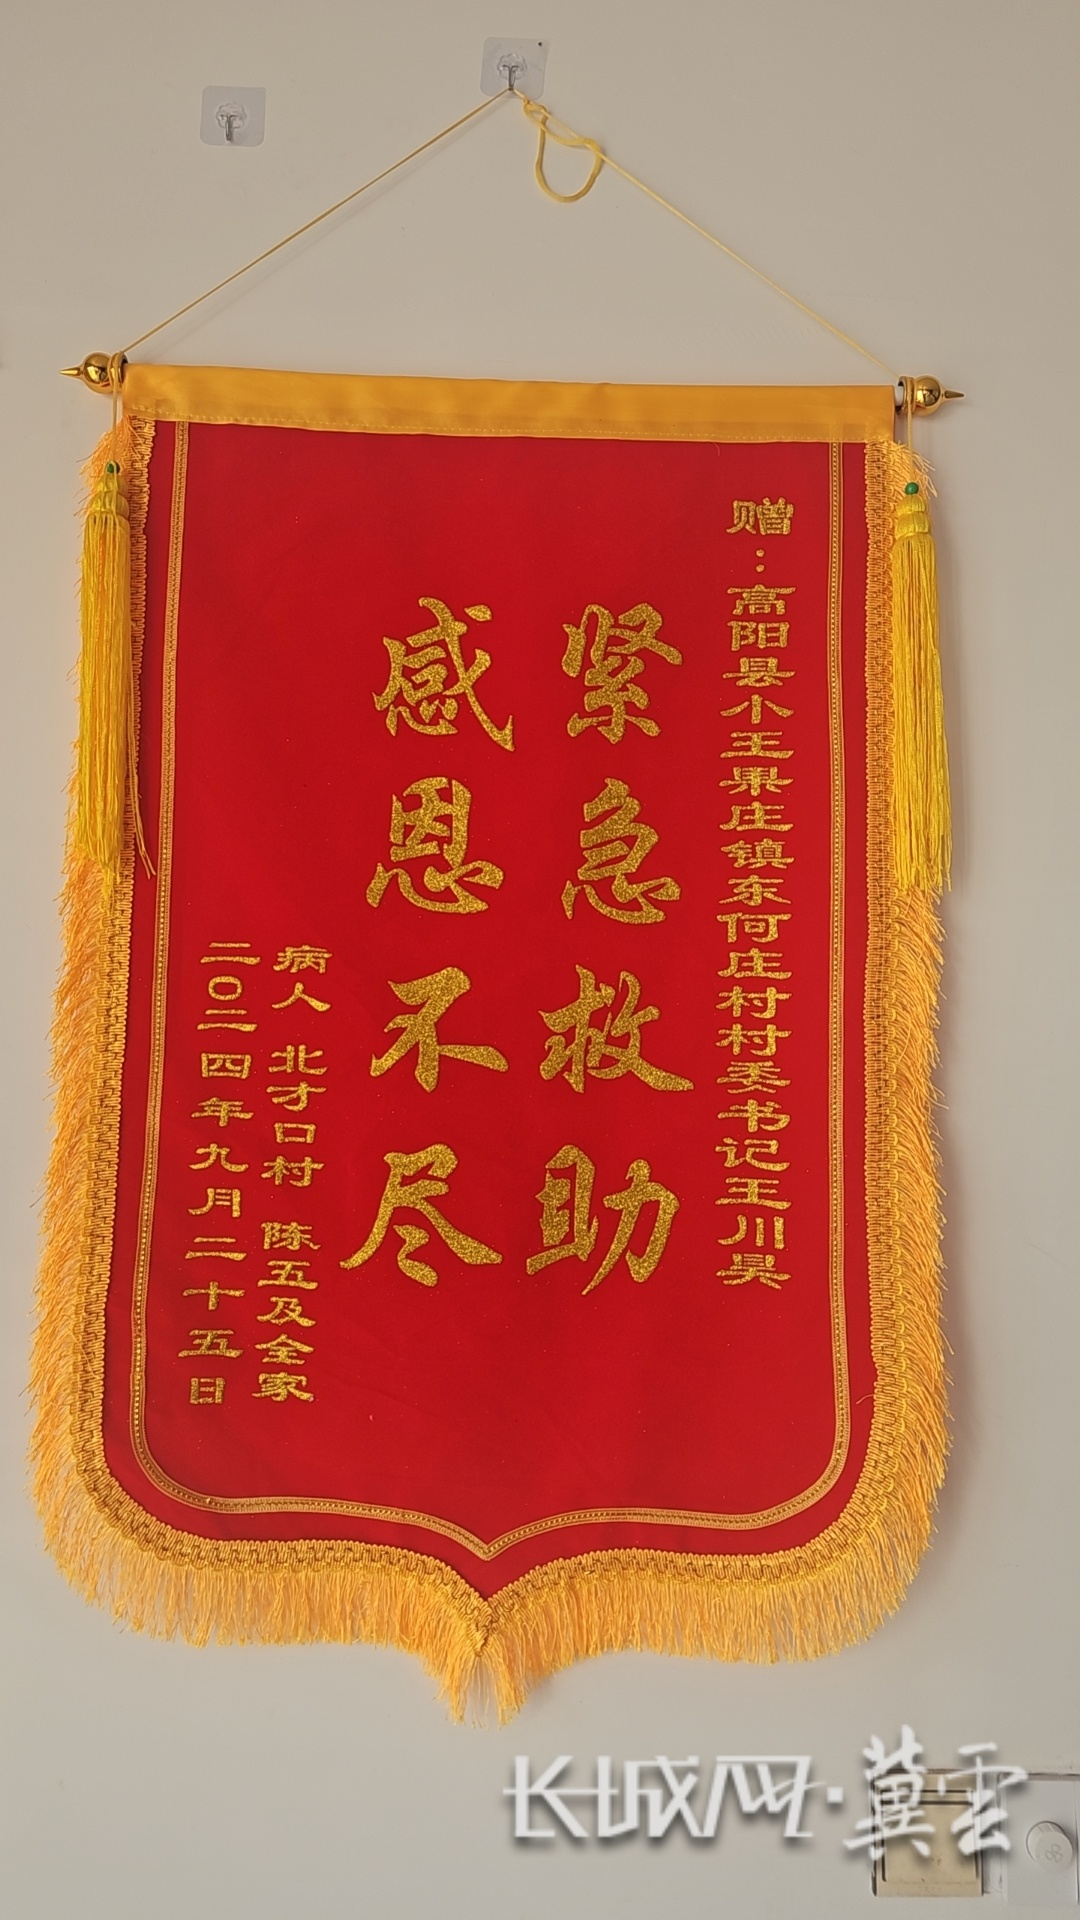 赠：高阳县小王果庄镇东何庄村村委书记王川吴
紧急救助
感恩不尽
病人 北才口村 陈五及全家
二〇二四年九月二十五日
长城网·冀云